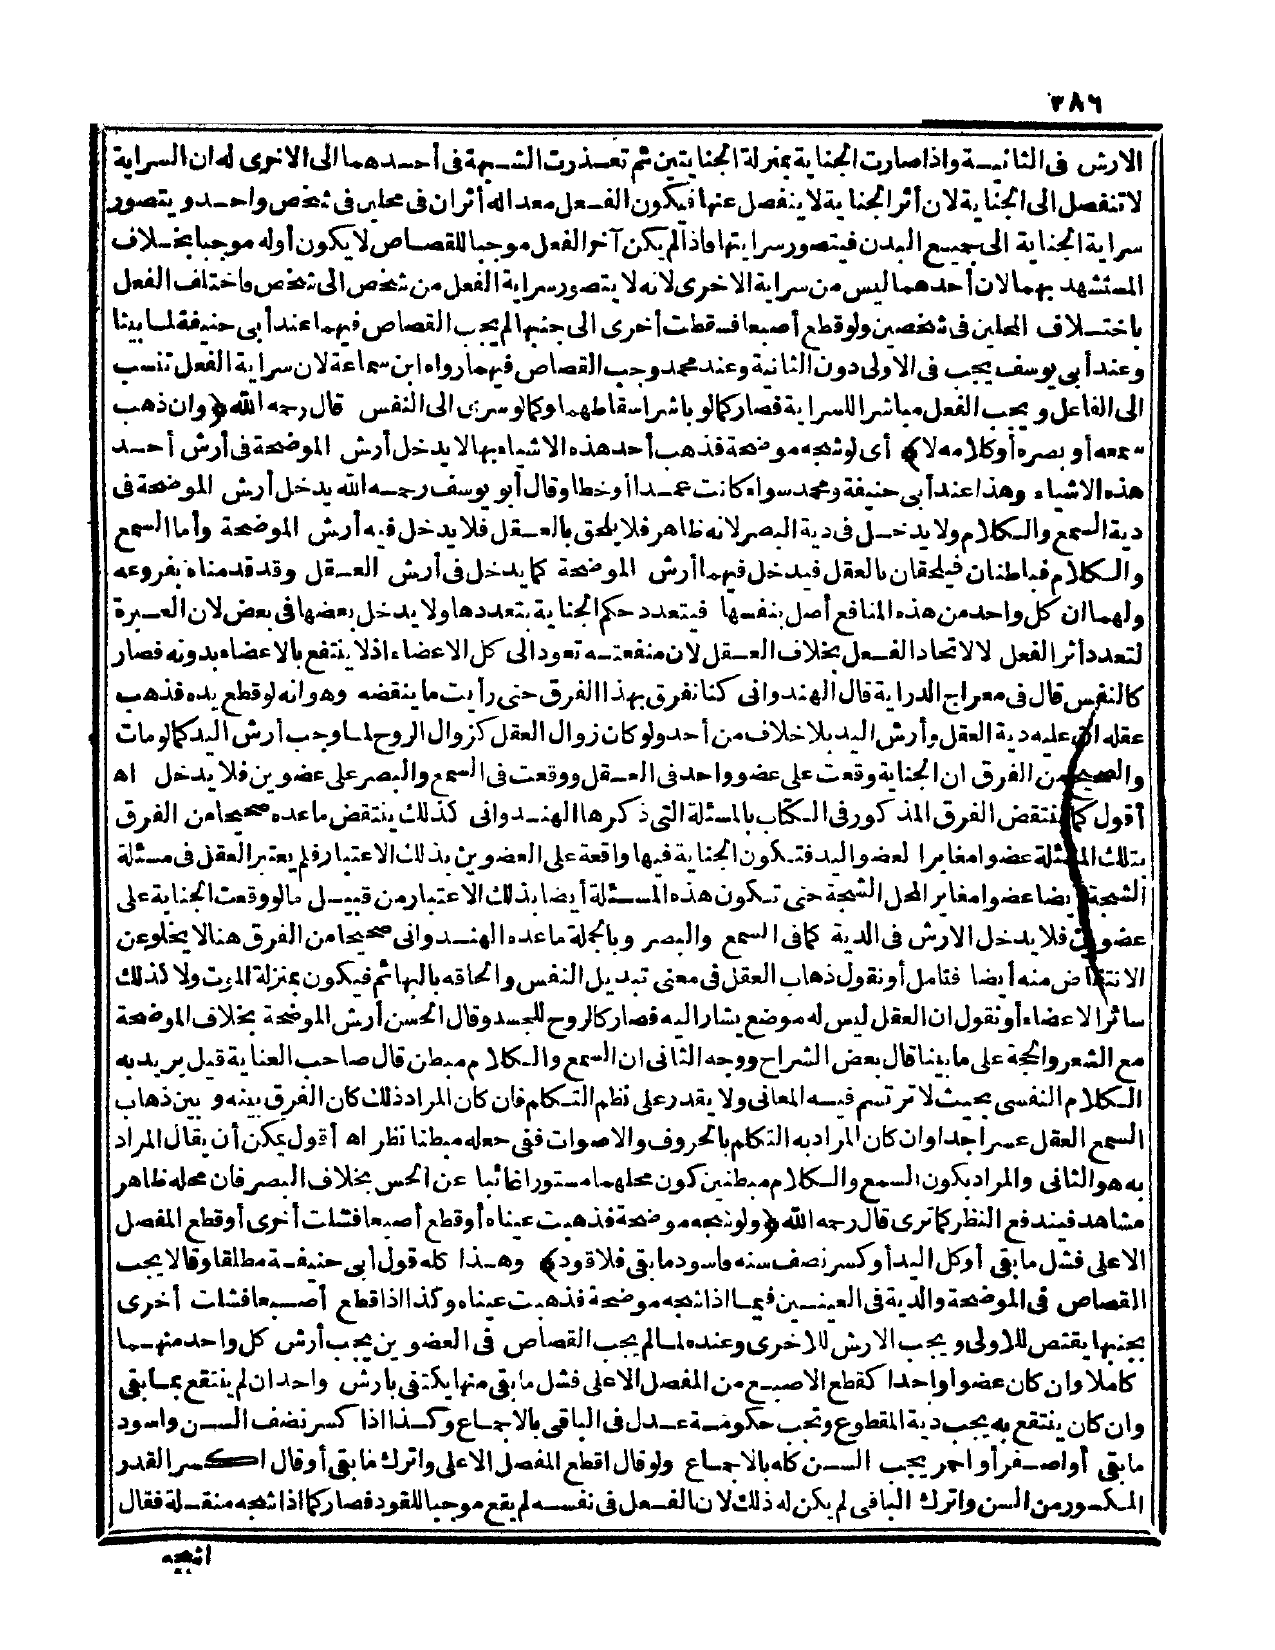 ٣٨٦
الارش فى الثانية واذا صارت الجناية بمنزلة الجنايتين ثم تعذرت الشبهة فى أحدهما الى الاخرى له ان السراية
لا تنفصل الى الجناية لان أثر الجناية لا ينفصل عنها فيكون الفعل معدا له أثران فى محلين فى شخص واحد ويتصور
سراية الجناية الى جميع البدن فيتصور سرايتها فاذا لم يكن آخر الفعل موجبا للقصاص لا يكون أوله موجبا بخلاف
المستشهد بهما لان أحدهما ليس من سراية الاخرى لانه لا يتصور سراية الفعل من شخص الى شخص فاختلف الفعل
باختلاف المحلين فى شخصين ولو قطع أصبعا فسقطت أخرى الى جنبها لم يجب القصاص فيهما عند أبى حنيفة لما بينا
وعند أبى يوسف يجب فى الاولى دون الثانية وعند محمد وجب القصاص فيهما رواه ابن سماعة لان سراية الفعل تنسب
الى الفاعل ويجب الفعل مباشرا للسراية فصار كما لو باشر اسقاطهما وكما لو سرى الى النفس قال رحمه الله ﴿وان ذهب
سمعه أو بصره أو كلامه لا﴾ أى لو شجه موضحة فذهب أحد هذه الاشياء بها لا يدخل أرش الموضحة فى أرش أحد
هذه الاشياء وهذا عند أبى حنيفة ومحمد سواء كانت عمدا أو خطا وقال أبو يوسف رحمه الله يدخل أرش الموضحة فى
دية السمع والكلام ولا يدخل فى دية البصر لانه ظاهر فلا يلحق بالعقل فلا يدخل فيه أرش الموضحة وأما السمع
والكلام فباطنان فيلحقان بالعقل فيدخل فيهما أرش الموضحة كما يدخل فى أرش العقل وقد قدمناه بفروعه
ولهما ان كل واحد من هذه المنافع أصل بنفسها فيتعدد حكم الجناية بتعددها ولا يدخل بعضها فى بعض لان العبرة
لتعدد أثر الفعل لا لاتحاد الفعل بخلاف العقل لان منفعته تعود الى كل الاعضاء اذ لا ينتفع بالاعضاء بدونه فصار
كالنفس قال فى معراج الدراية قال الهندوانى كنا نفرق بهذا الفرق حتى رأيت ما ينقضه وهو انه لو قطع يده فذهب
عقله ان عليه دية العقل وأرش اليد بلا خلاف من أحد ولو كان زوال العقل كزوال الروح لما وجب أرش اليد كما لو مات
والصحيح من الفرق ان الجناية وقعت على عضو واحد فى العقل ووقعت فى السمع والبصر على عضوين فلا يدخل اه
أقول كما ينتقض الفرق المذكور فى الكتاب بالمسئلة التى ذكرها الهندوانى كذلك ينتقض ما عده صحيحا من الفرق
بتلك المسئلة عضوا مغايرا لعضو اليد فتكون الجناية فيها واقعة على العضوين بذلك الاعتبار فلم يعتبر العقل فى مسئلة
الشجة أيضا عضوا مغاير المحل الشجة حتى تكون هذه المسئلة أيضا بذلك الاعتبار من قبيل ما لو وقعت الجناية على
عضوين فلا يدخل الارش فى الدية كما فى السمع والبصر وبالجملة ما عده الهندوانى صحيحا من الفرق هنا لا يخلو عن
الانتقاض منه أيضا فتامل أو نقول ذهاب العقل فى معنى تبديل النفس والحاقه بالبهائم فيكون بمنزلة الموت ولا كذلك
سائر الاعضاء أو نقول ان العقل ليس له موضع يشار اليه فصار كالروح للجسد وقال الحسن أرش الموضحة بخلاف الموضحة
مع الشعر والحجة على ما بينا قال بعض الشراح ووجه الثانى ان السمع والكلام مبطن قال صاحب العناية قيل يريد به
الكلام النفسى بحيث لا ترتسم فيه المعانى ولا يقدر على نظم التكلم فان كان المراد ذلك كان الفرق بينه و بين ذهاب
السمع العقل عسرا جدا وان كان المراد به التكلم بالحروف والاصوات ففى جعله مبطنا نظر اه أقول يمكن أن يقال المراد
به هو الثانى والمراد بكون السمع والكلام مبطنين كون محلهما مستورا غائبا عن الحس بخلاف البصر فان محله ظاهر
مشاهد فيندفع النظر كما ترى قال رحمه الله ﴿ولو شجه موضحة فذهبت عيناه أو قطع أصبعا فشلت أخرى أو قطع المفصل
الاعلى فشل ما بقى أو كل اليد أو كسر نصف سنه فاسود ما بقى فلا قود﴾ وهذا كله قول أبى حنيفة مطلقا وقالا يجب
القصاص فى الموضحة والدية فى العينين فيما اذا شجه موضحة فذهبت عيناه وكذا اذا قطع أصبعا فشلت أخرى
بجنبها يقتص للاولى ويجب الارش للاخرى وعنده لما لم يجب القصاص فى العضوين يجب أرش كل واحد منهما
كاملا وان كان عضوا واحدا كقطع الاصبع من المفصل الاعلى فشل ما بقى منها يكتفى بارش واحد ان لم ينتفع بما بقى
وان كان ينتفع به يجب دية المقطوع وتجب حكومة عدل فى الباقى بالاجماع وكذا اذا كسر نصف السن واسود
ما بقى أو اصفر أو احمر يجب السن كله بالاجماع ولو قال اقطع المفصل الاعلى واترك ما بقى أو قال اكسر القدر
المكسور من السن واترك الباقى لم يكن له ذلك لان الفعل فى نفسه لم يقع موجبا للقود فصار كما اذا شجه منقلة فقال
اشجه